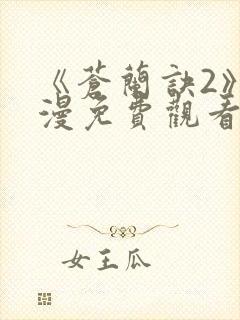 《蒼蘭訣2》
漫免費觀看
女王瓜